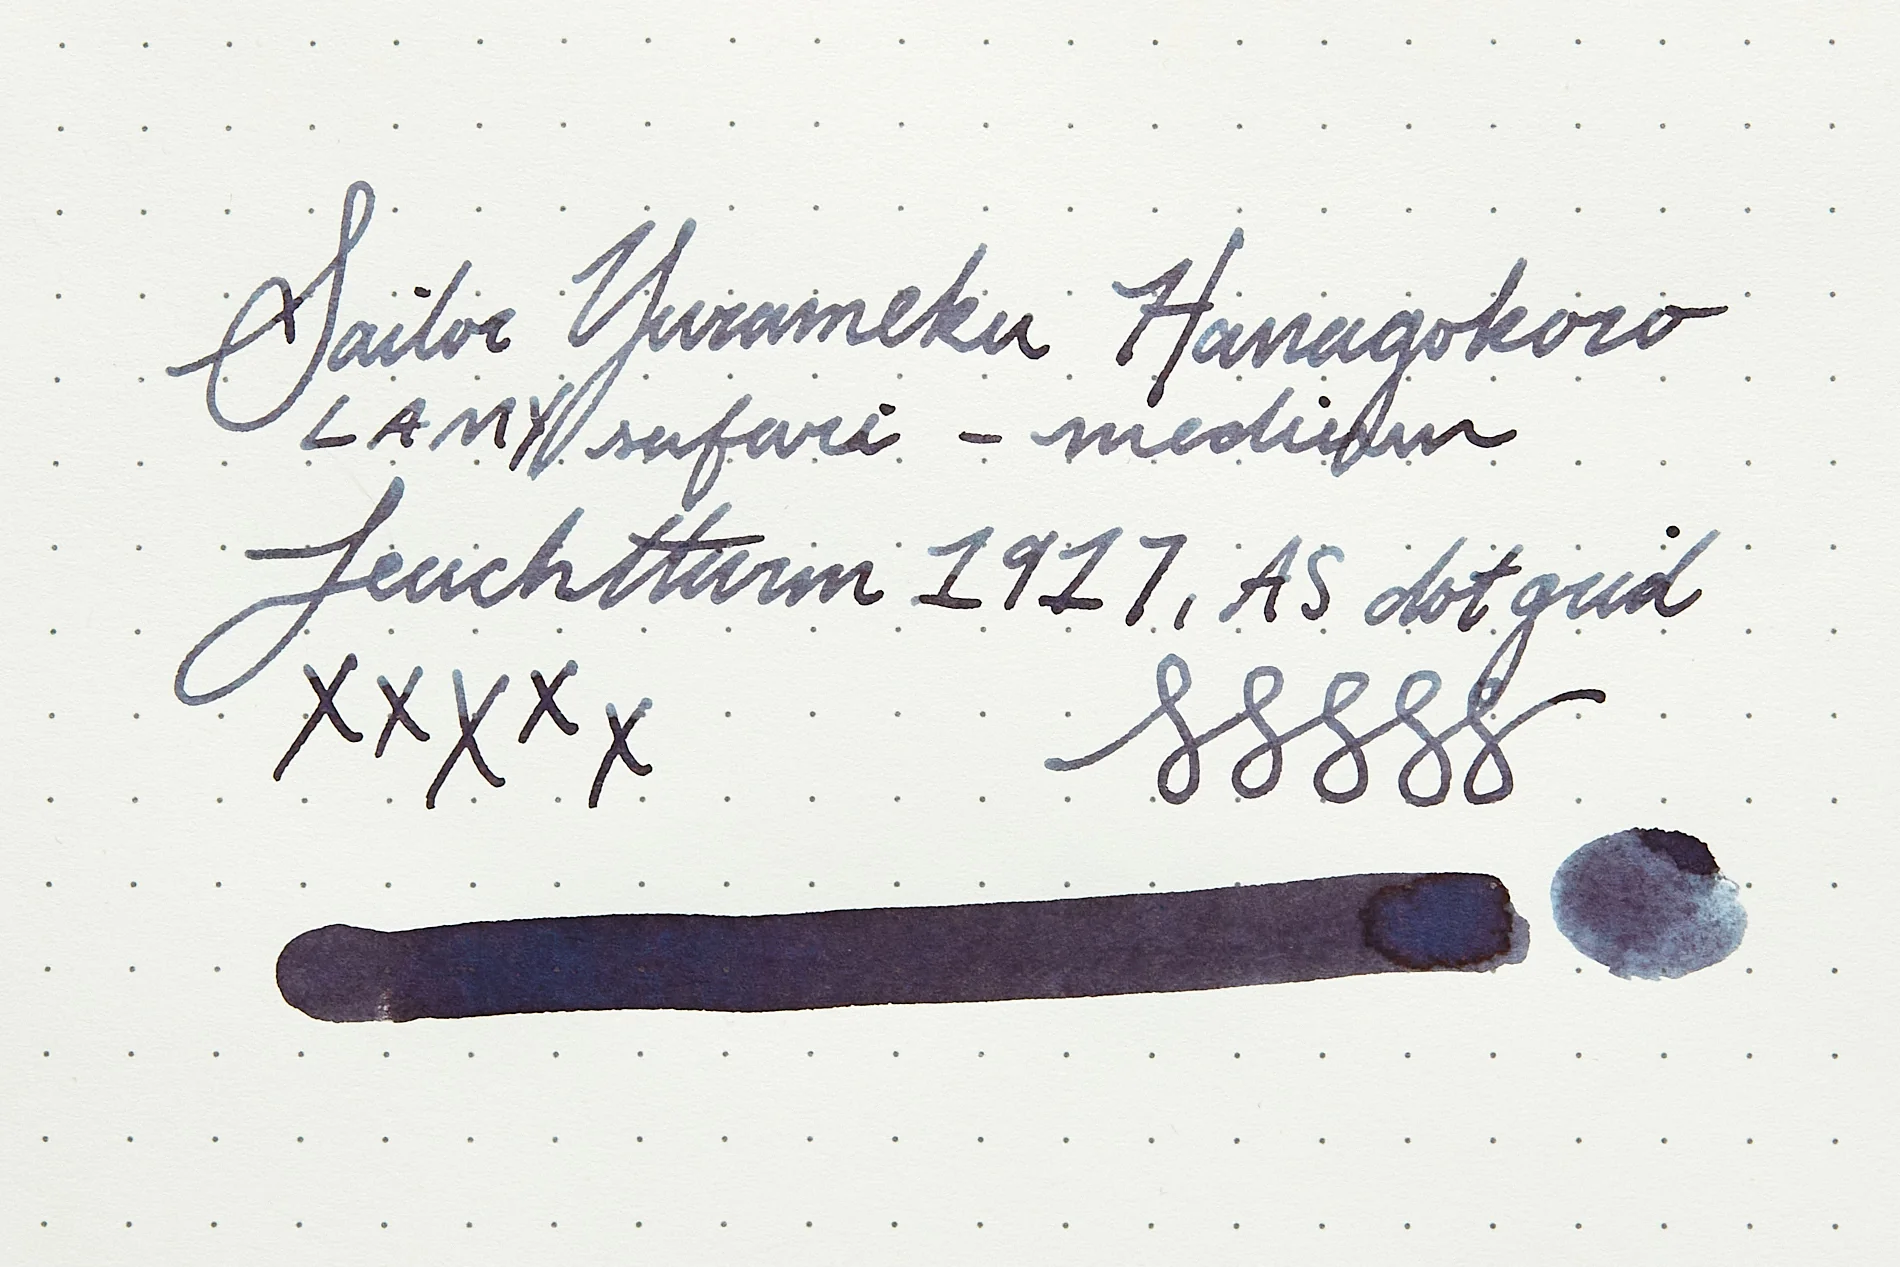 Sailor Yurameku Hanagokoro
LAMY safari - medium
Leuchtturm 1917, A5 dot grid
x x x x x